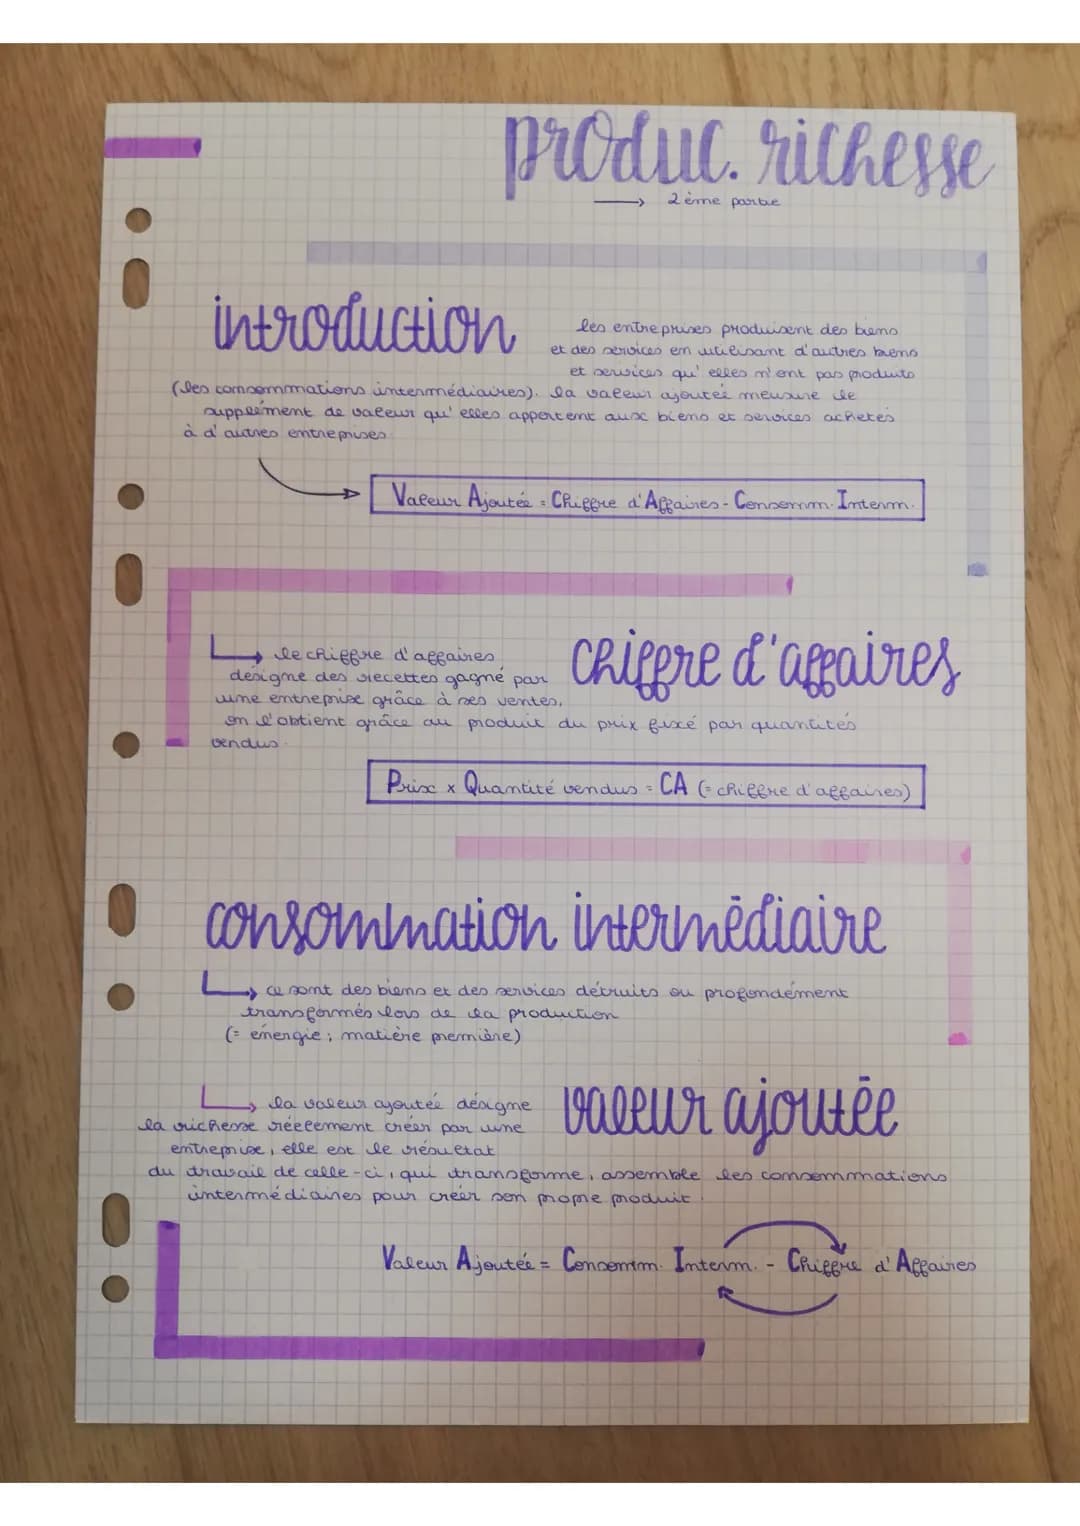 produc. richesse
→ 2 ème partie
introduction
les entreprises produisent des biens
et des services en utilisant d'autres biens
et services qu'elles n'ont pas produits
(les consommations intermédiaires). la valeur ajoutée mesure le
supplément de valeur qu'elles apportent aux biens et services achetés
à d'autres entreprises.
Valeur Ajoutée = Chiffre d'Affaires - Consomm. Interm.
chiffre d'affaires
le chiffre d'affaires
désigne des recettes gagné par
une entreprise grâce à ses ventes,
on l'obtient grâce au produit du prix fixé par quantités
vendus.
Prix x Quantité vendus = CA (= chiffre d'affaires)
consommation intermédiaire
ce sont des biens et des services détruits ou profondément
transformés lors de la production
(= énergie ; matière première)
valeur ajoutée
la valeur ajoutée désigne
la richesse réellement créer par une
entreprise, elle est le résultat
du travail de celle-ci, qui transforme, assemble les consommations
intermédiaires pour créer son propre produit.
Valeur Ajoutée = Consomm. Interm. - Chiffre d'Affaires